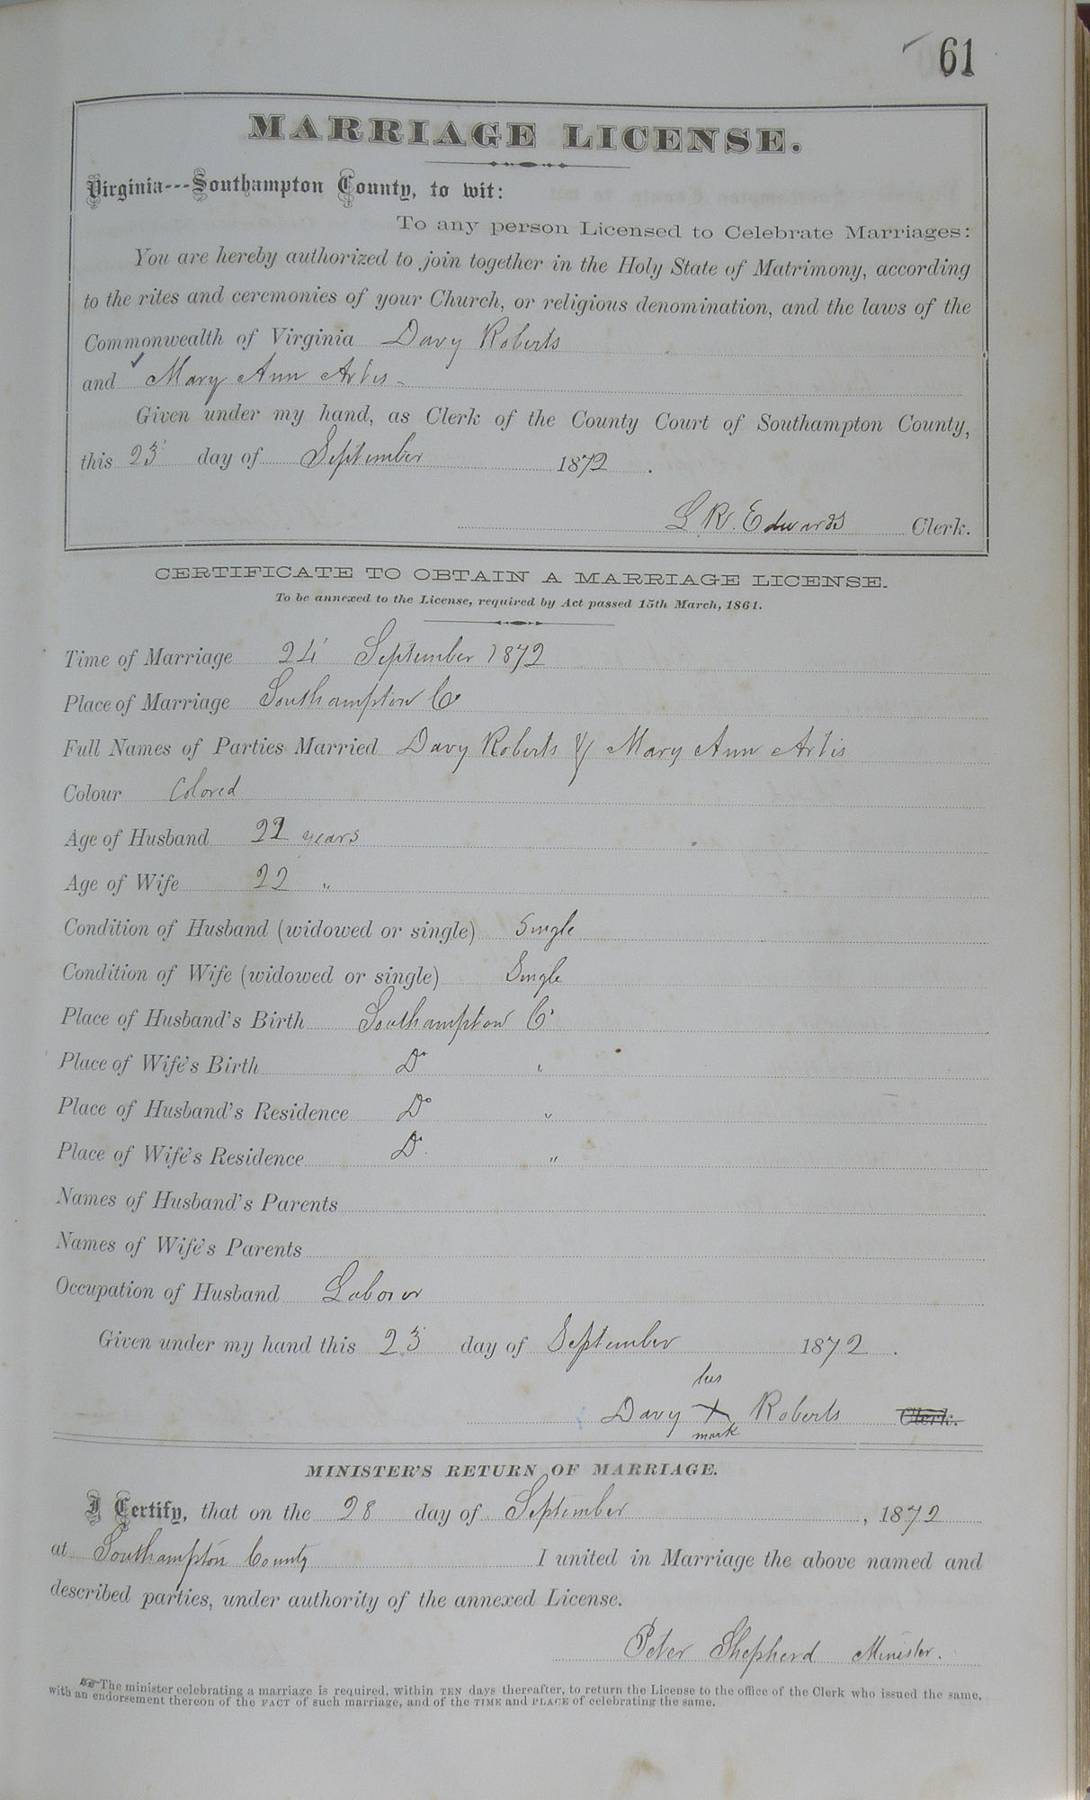 61
MARRIAGE LICENSE.
Virginia---Southampton County, to wit:
To any person Licensed to Celebrate Marriages:
You are hereby authorized to join together in the Holy State of Matrimony, according
to the rites and ceremonies of your Church, or religious denomination, and the laws of the
Commonwealth of Virginia Davy Roberts
and Mary Ann Artis
Given under my hand, as Clerk of the County Court of Southampton County,
this 23 day of September 1872.
L R. Edwards Clerk.
CERTIFICATE TO OBTAIN A MARRIAGE LICENSE.
To be annexed to the License, required by Act passed 15th March, 1861.
Time of Marriage 24 September 1872
Place of Marriage Southampton Co
Full Names of Parties Married Davy Roberts & Mary Ann Artis
Colour Colored
Age of Husband 22 years
Age of Wife 22 "
Condition of Husband (widowed or single) Single
Condition of Wife (widowed or single) Single
Place of Husband's Birth Southampton Co
Place of Wife's Birth Do "
Place of Husband's Residence Do "
Place of Wife's Residence Do "
Names of Husband's Parents
Names of Wife's Parents
Occupation of Husband Laborer
Given under my hand this 23 day of September 1872.
his
Davy X Roberts Clerk.
mark
MINISTER'S RETURN OF MARRIAGE.
I Certify, that on the 28 day of September, 1872
at Southampton County I united in Marriage the above named and
described parties, under authority of the annexed License.
Peter Shepherd Minister.
☞The minister celebrating a marriage is required, within TEN days thereafter, to return the License to the office of the Clerk who issued the same,
with an endorsement thereon of the FACT of such marriage, and of the TIME and PLACE of celebrating the same.